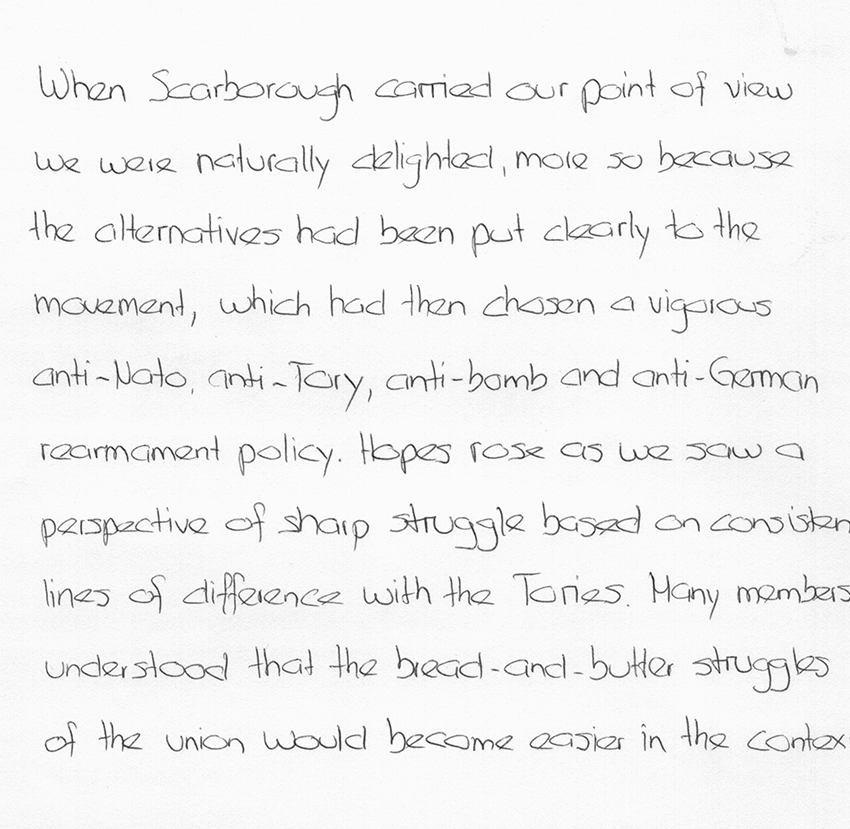 When Scarborough carried our point of view
we were naturally delighted, more so because
the alternatives had been put clearly to the
movement, which had then chosen a vigorous
anti-Nato, anti-Tory, anti-bomb and anti-German
rearmament policy. Hopes rose as we saw a
perspective of sharp struggle based on consisten
lines of difference with the Tories. Many members
understood that the bread-and-butter struggles
of the union would become easier in the contex